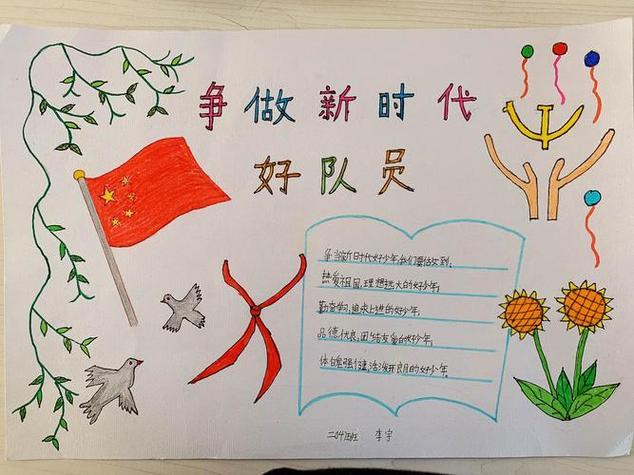 争做新时代
好队员
争当新时代好少年,我们要做到:
热爱祖国,理想远大的好少年;
勤奋学习,追求上进的好少年;
品德优良,团结友爱的好少年;
体魄强健,活泼开朗的好少年。
二04班 李宇